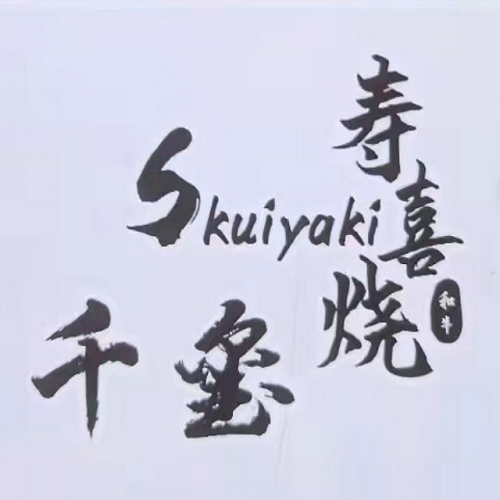 寿喜烧
Skuiyaki
和牛
千